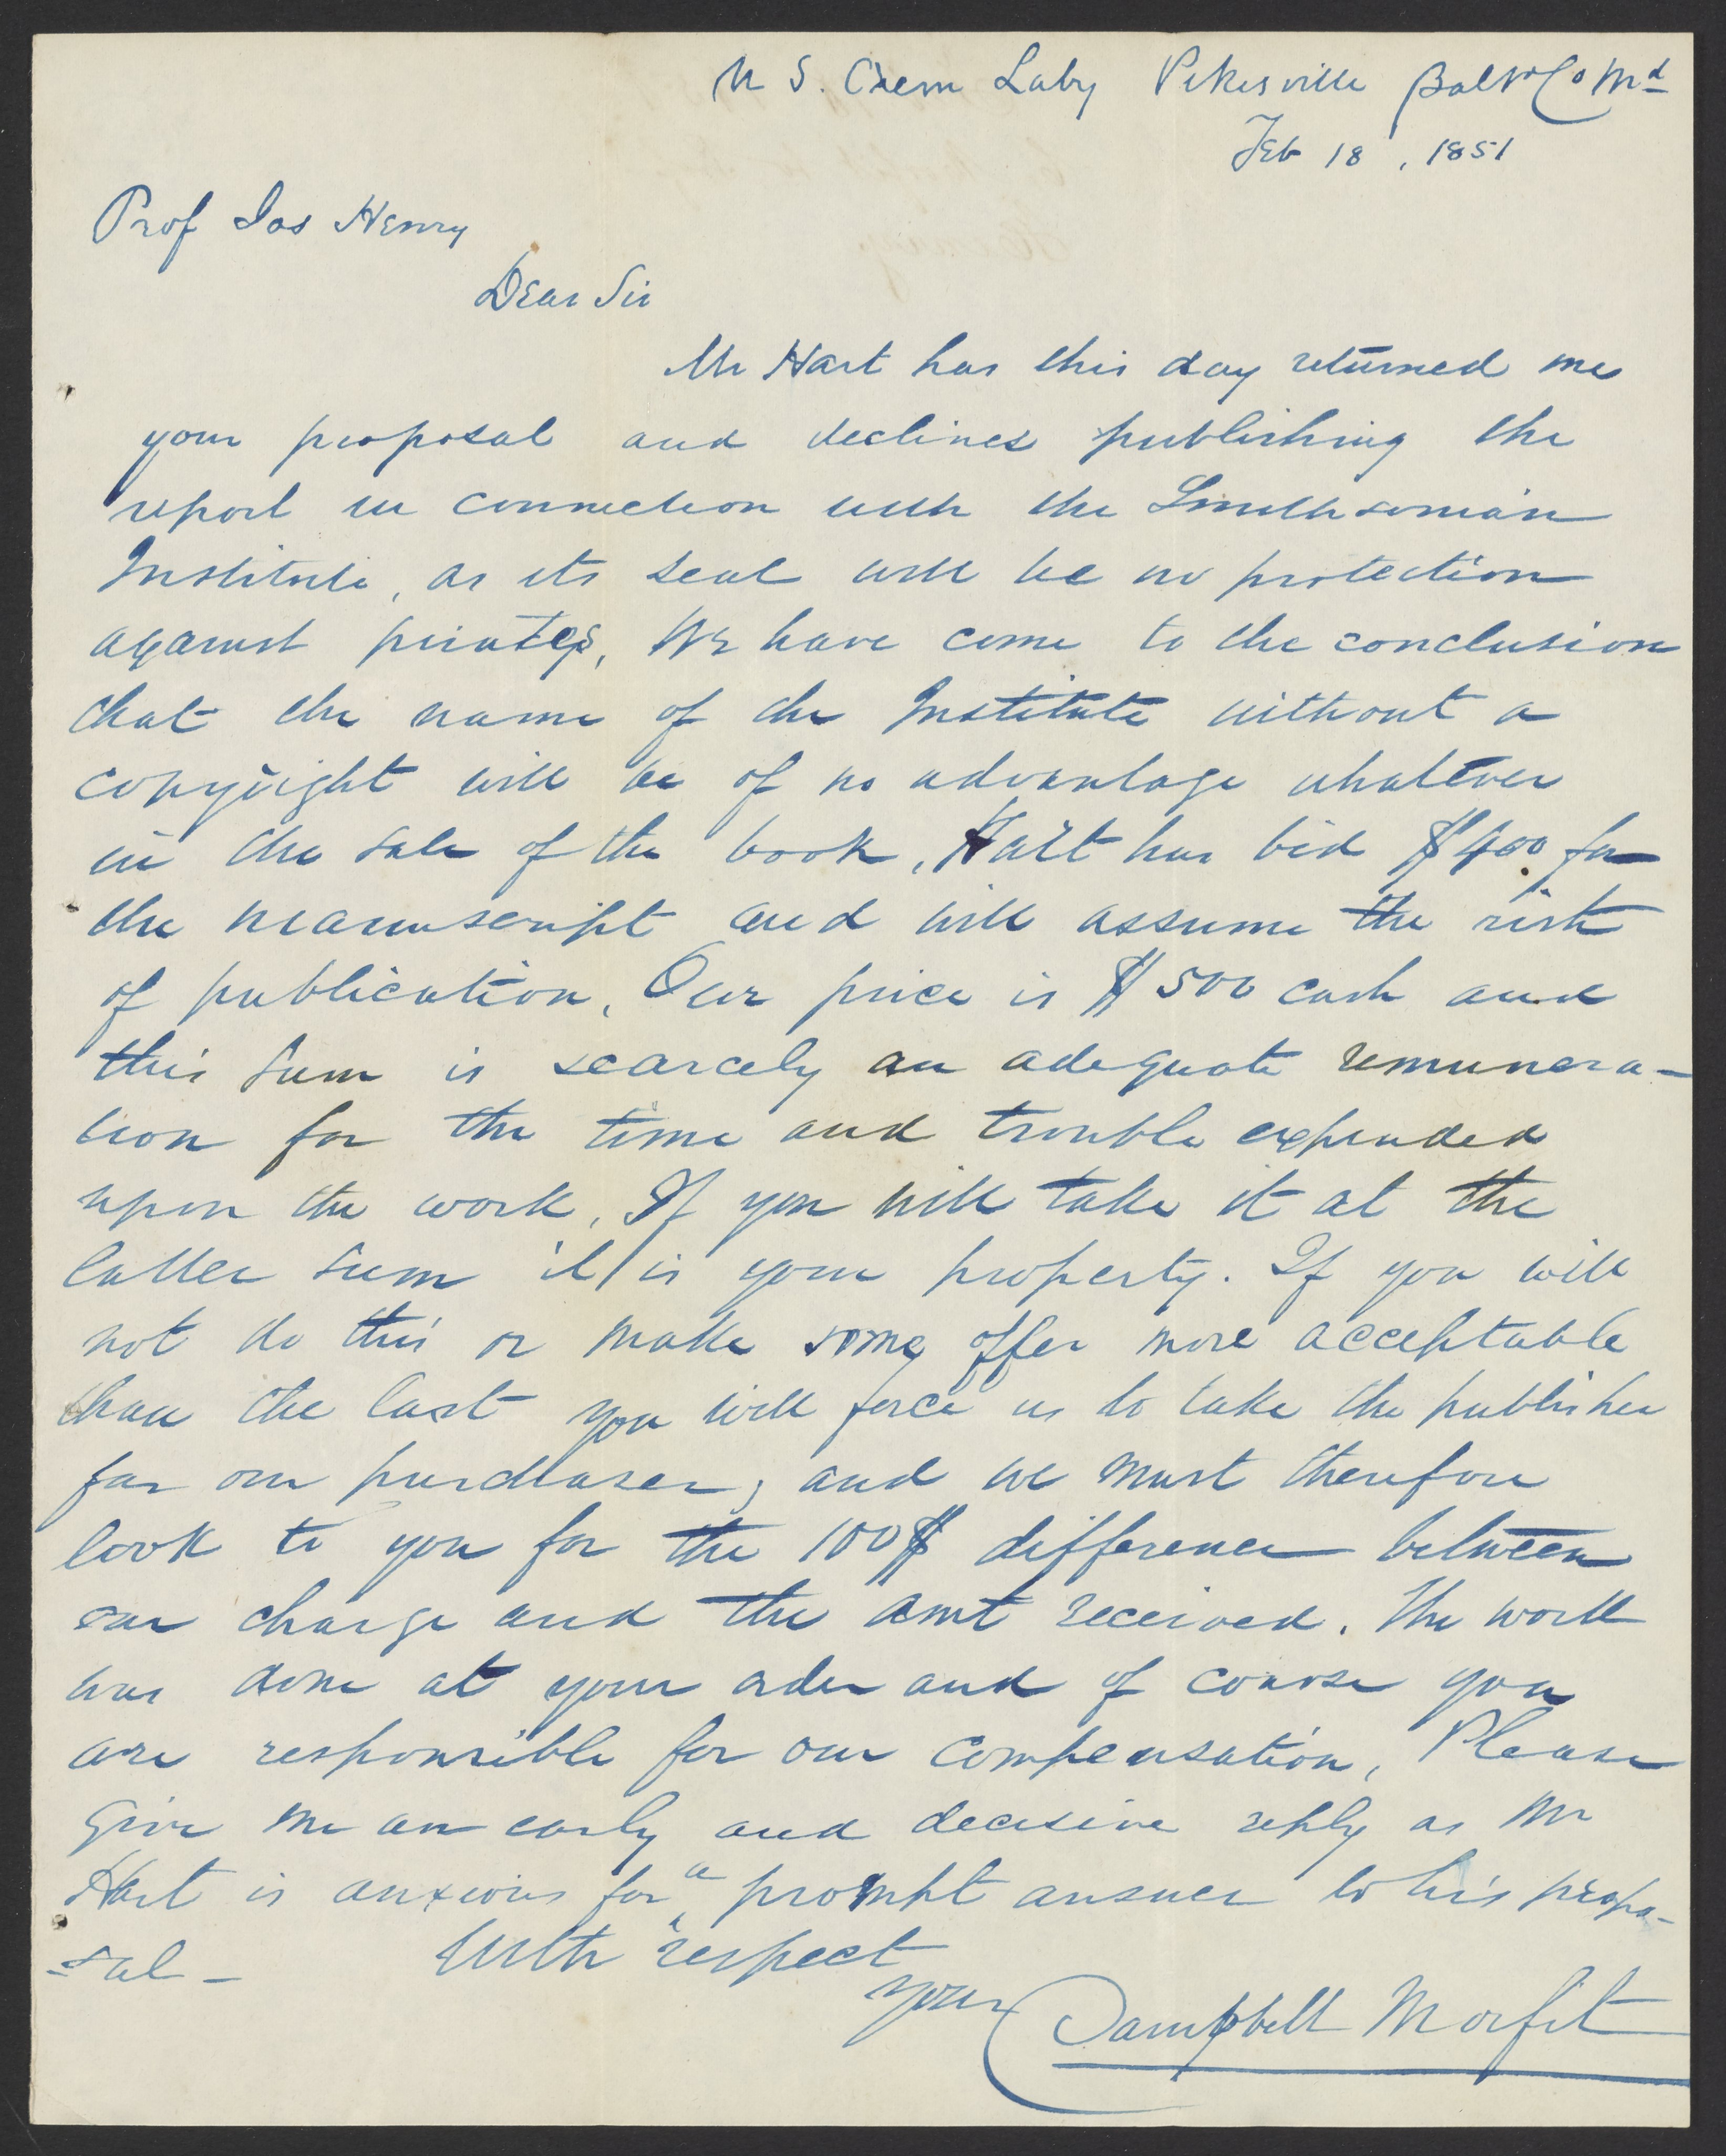 U S. Chem Laby Pikesville Balto Co Md
Feb 18, 1851
Prof Jos Henry
Dear Sir
Mr Hart has this day returned me
your proposal and declines publishing the
report in connection with the Smithsonian
Institute, as its seal will be no protection
against pirates, We have come to the conclusion
that the name of the Institute without a
copyright will be of no advantage whatever
in the sale of the book, Hart has bid $400 for
the manuscript and will assume the risk
of publication, Our price is $500 cash and
this sum is scarcely an adequate remunera-
tion for the time and trouble expended
upon the work, If you will take it at the
latter sum it is your property. If you will
not do this or make some offer more acceptable
than the last you will force us to take the publisher
for our purchaser, and we must therefore
look to you for the 100$ difference between
our charge and the amt received. The work
was done at your order and of course you
are responsible for our compensation, Please
give me an early and decisive reply as Mr
Hart is anxious for a prompt answer to his propo-
-sal -
With respect
your
Campbell Morfit